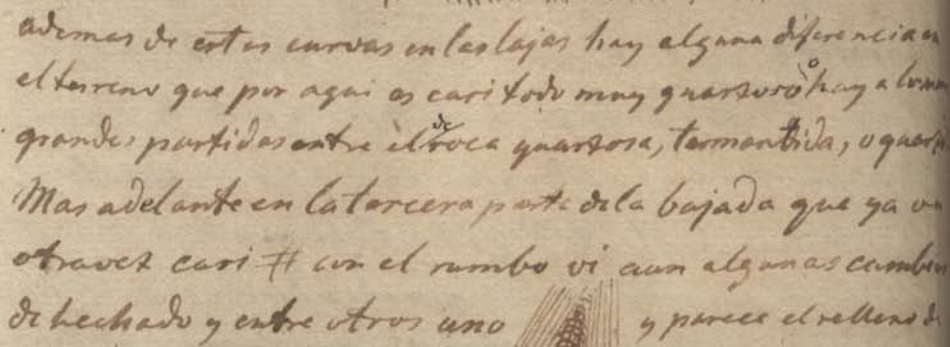 ademas de estas curvas en las lajas hay alguna diferencia en
el terreno que por aqui es casi todo muy quarzoso ò hay a lo men
grandes partidas entre èl de roca quarzosa, termantida, o quarz
Mas adelante en la tercera parte de la bajada que ya va
otra vez casi # con el rumbo vi aun algunas cambi
de hechado y entre otros uno y parece el relleno de